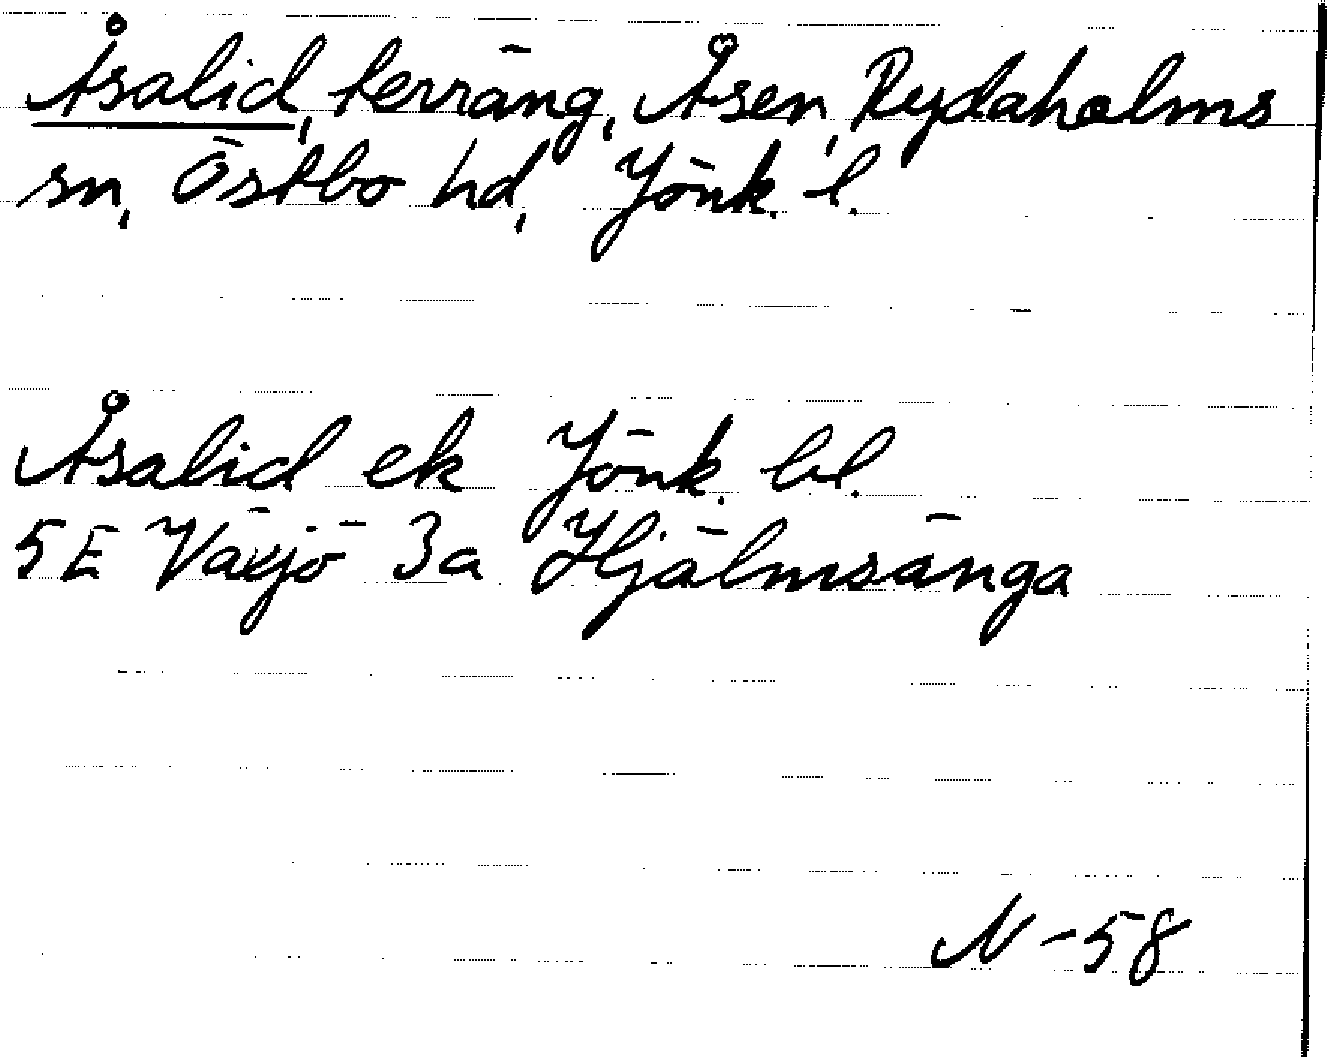 Åsalid, terräng, Åsen, Rydaholms
sn, Östbo hd, Jönk. l.
Åsalid ek Jönk. bl.
5E Växjö 3a Hjälmsänga
N-58